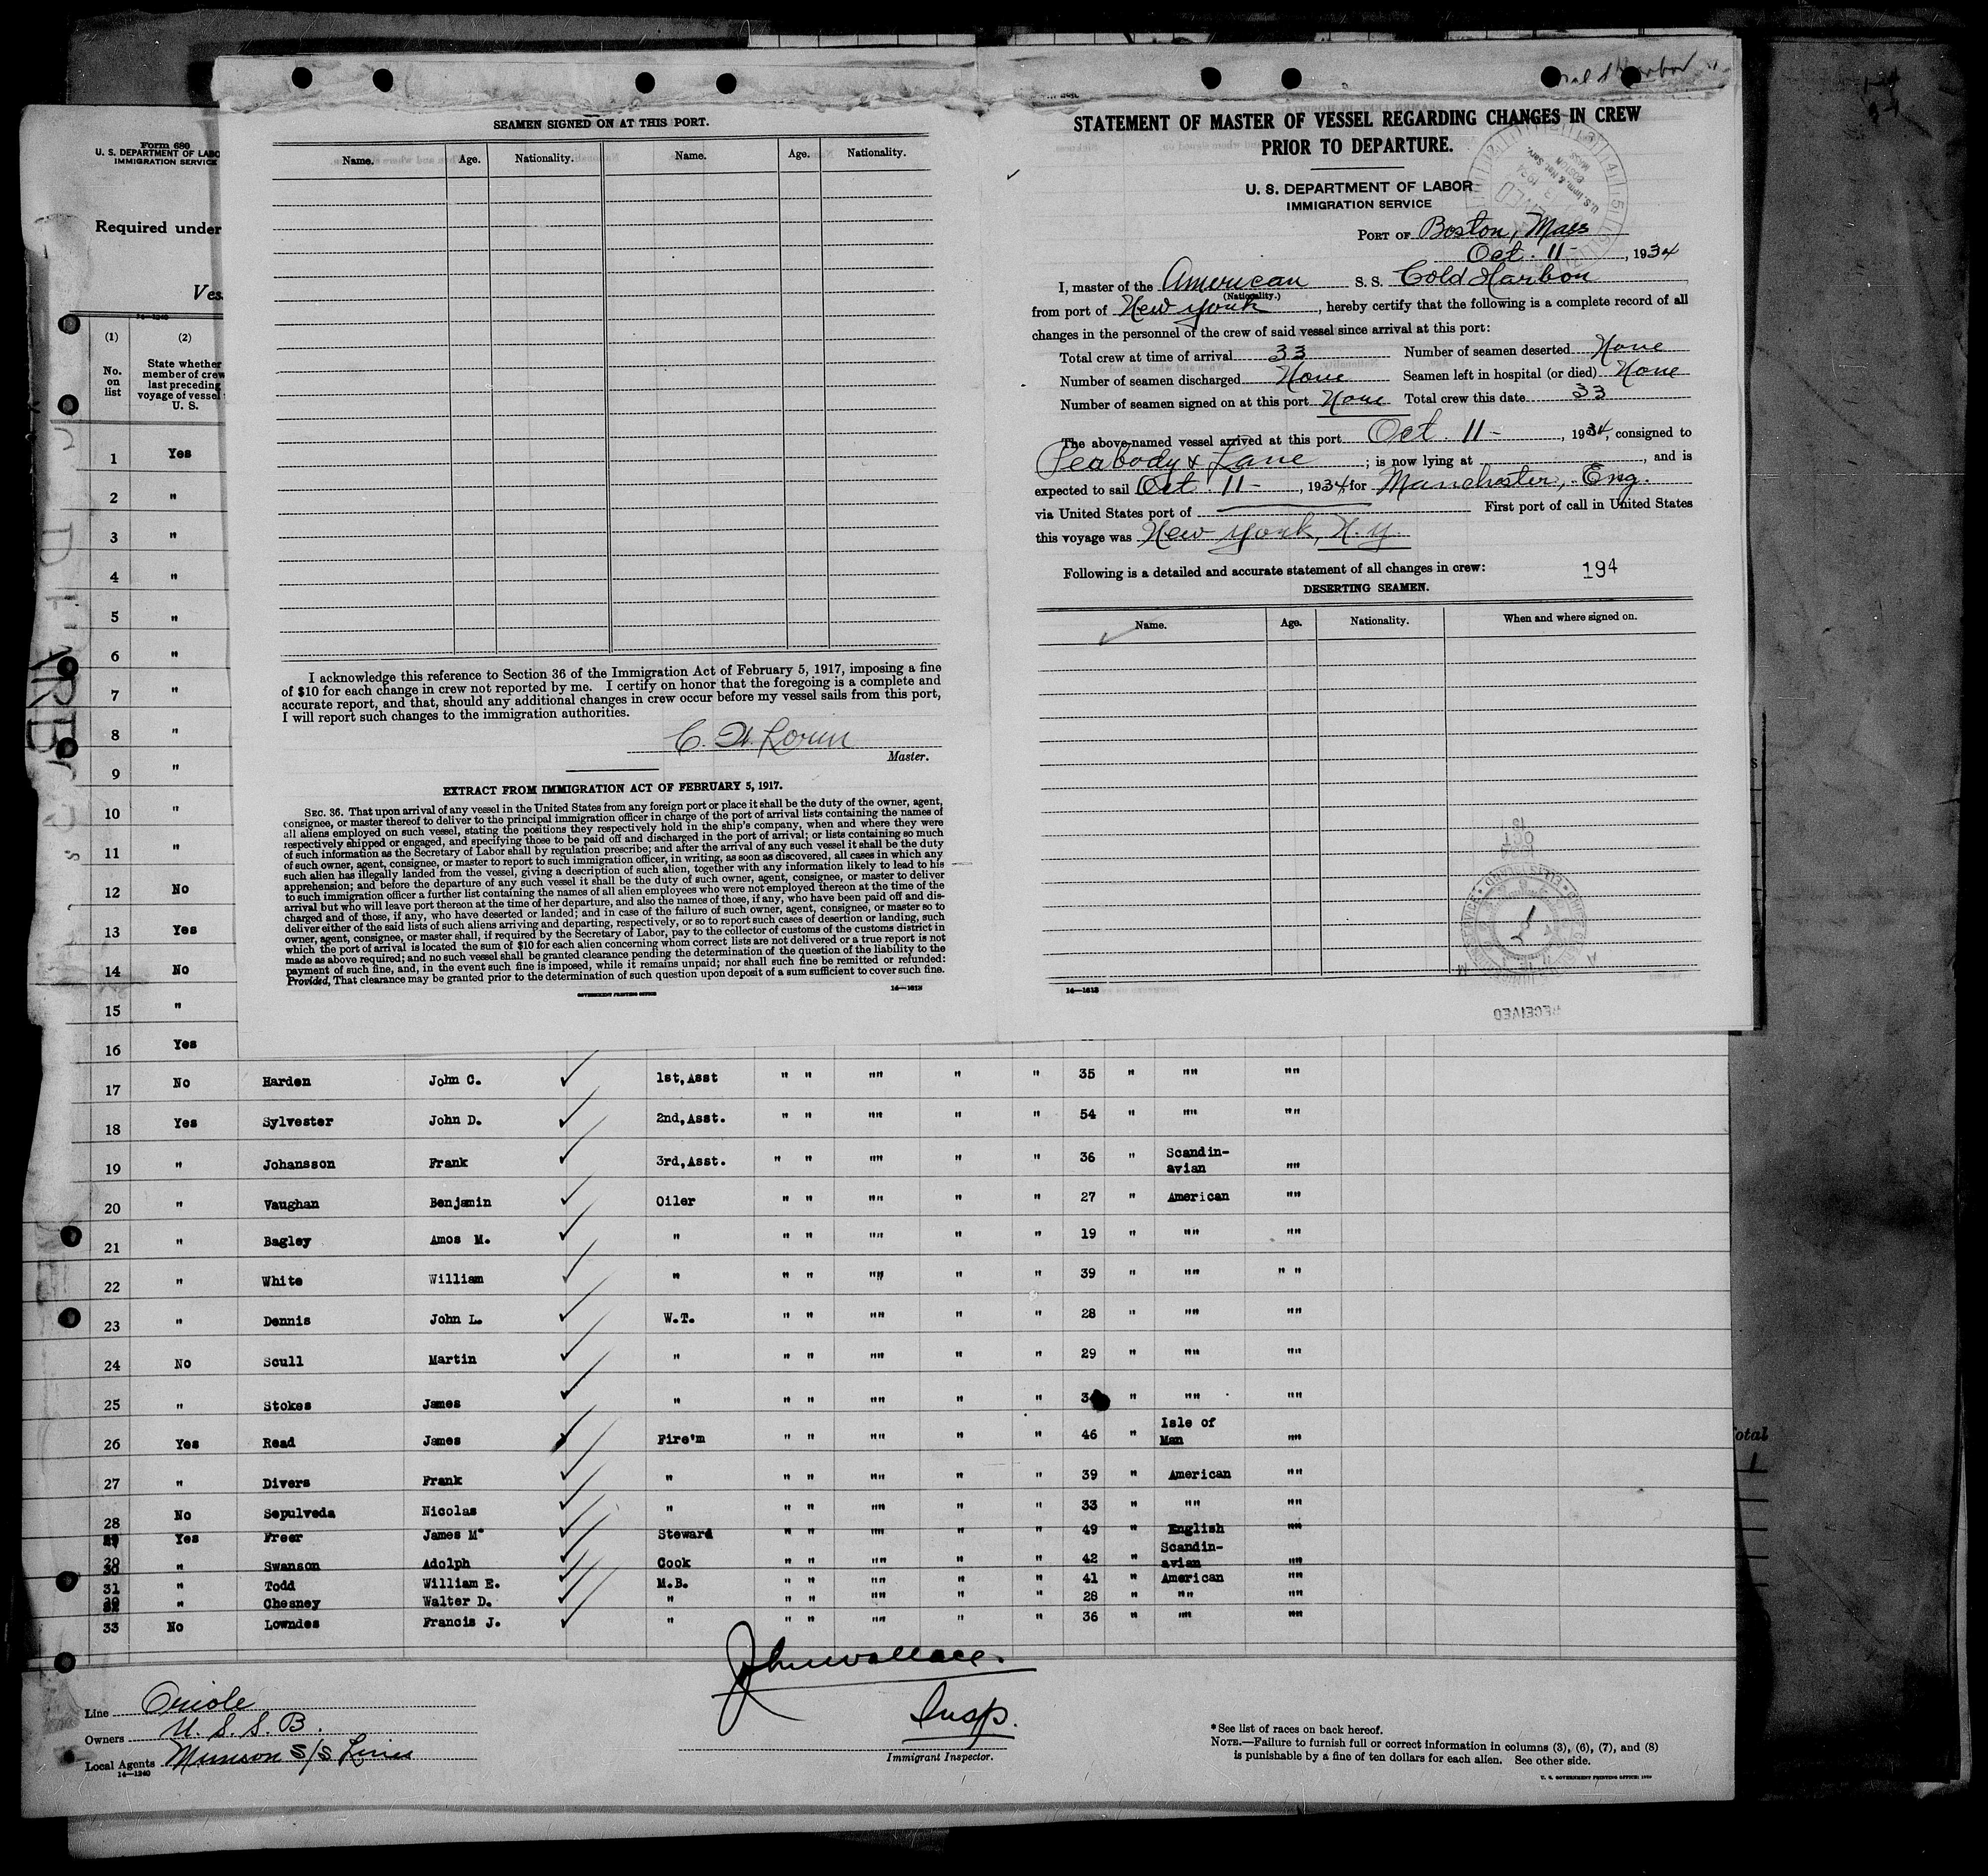 Form 680
U. S. DEPARTMENT OF LABO
IMMIGRATION SERVICE
Required under
Ves
14—1240
(1)
(2)
No.
on
list
State whether
member of crew
last preceding
voyage of vessel
U. S.
1 Yes
2 "
3 "
4 "
5 "
6 "
7 "
8 "
9 "
10 "
11 "
12 No
13 Yes
14 No
15 "
16 Yes
SEAMEN SIGNED ON AT THIS PORT.
Name. Age. Nationality. Name. Age. Nationality.
I acknowledge this reference to Section 36 of the Immigration Act of February 5, 1917, imposing a fine
of $10 for each change in crew not reported by me. I certify on honor that the foregoing is a complete and
accurate report, and that, should any additional changes in crew occur before my vessel sails from this port,
I will report such changes to the immigration authorities.
Master.
EXTRACT FROM IMMIGRATION ACT OF FEBRUARY 5, 1917.
SEC. 36. That upon arrival of any vessel in the United States from any foreign port or place it shall be the duty of the owner, agent,
consignee, or master thereof to deliver to the principal immigration officer in charge of the port of arrival lists containing the names of
all aliens employed on such vessel, stating the positions they respectively hold in the ship's company, when and where they were
respectively shipped or engaged, and specifying those to be paid off and discharged in the port of arrival; or lists containing so much
of such information as the Secretary of Labor shall by regulation prescribe; and after the arrival of any such vessel it shall be the duty
of such owner, agent, consignee, or master to report to such immigration officer, in writing, as soon as discovered, all cases in which any
such alien has illegally landed from the vessel, giving a description of such alien, together with any information likely to lead to his
apprehension; and before the departure of any such vessel it shall be the duty of such owner, agent, consignee, or master to deliver
to such immigration officer a further list containing the names of all alien employees who were not employed thereon at the time of the
arrival but who will leave port thereon at the time of her departure, and also the names of those, if any, who have been paid off and dis-
charged and of those, if any, who have deserted or landed; and in case of the failure of such owner, agent, consignee, or master so to
deliver either of the said lists of such aliens arriving and departing, respectively, or so to report such cases of desertion or landing, such
owner, agent, consignee, or master shall, if required by the Secretary of Labor, pay to the collector of customs of the customs district in
which the port of arrival is located the sum of $10 for each alien concerning whom correct lists are not delivered or a true report is not
made as above required; and no such vessel shall be granted clearance pending the determination of the question of the liability to the
payment of such fine, and, in the event such fine is imposed, while it remains unpaid; nor shall such fine be remitted or refunded:
Provided, That clearance may be granted prior to the determination of such question upon deposit of a sum sufficient to cover such fine.
GOVERNMENT PRINTING OFFICE 14—1613
STATEMENT OF MASTER OF VESSEL REGARDING CHANGES IN CREW
PRIOR TO DEPARTURE.
U. S. DEPARTMENT OF LABOR
IMMIGRATION SERVICE
PORT OF Boston, Mass
Oct. 11-, 1934
I, master of the American S. S. Cold Harbor
(Nationality.)
from port of New York, hereby certify that the following is a complete record of all
changes in the personnel of the crew of said vessel since arrival at this port:
Total crew at time of arrival 33 Number of seamen deserted None
Number of seamen discharged None Seamen left in hospital (or died) None
Number of seamen signed on at this port None Total crew this date 33
The above-named vessel arrived at this port Oct. 11-, 1934, consigned to
Peabody & Lane; is now lying at , and is
expected to sail Oct. 11-, 1934, for Manchester, Eng.
via United States port of First port of call in United States
this voyage was New York, N.Y.
Following is a detailed and accurate statement of all changes in crew: 194
DESERTING SEAMEN.
Name. Age. Nationality. When and where signed on.
14—1613
RECEIVED
17 No Harden John C. 1st,Asst " " "" " " 35 " "" ""
18 Yes Sylvester John D. 2nd,Asst. " " "" " " 54 " "" ""
19 " Johansson Frank 3rd,Asst. " " "" " " 36 " Scandin-
avian ""
20 " Vaughan Benjamin Oiler " " "" " " 27 " American ""
21 " Bagley Amos M. " " " "" " " 19 " "" ""
22 " White William " " " "" " " 39 " "" " "
23 " Dennis John L. W.T. " " "" " " 28 " "" ""
24 No Scull Martin " " " "" " " 29 " "" ""
25 " Stokes James " " " "" " " " "" ""
26 Yes Read James Fire'm " " "" " " 46 " Isle of
Man ""
27 " Divers Frank " " " "" " " 39 " American ""
28 No Sepulveda Nicolas " " " "" " " 33 " "" ""
Yes Freer James M" Steward " " "" " " 49 " English ""
30 " Swanson Adolph Cook " " "" " " 42 " Scandin-
avian ""
31 " Todd William E. M.B. " " "" " " 41 " American ""
" Chesney Walter D. " " " "" " " 28 " "" ""
33 No Lowndes Francis J. " " " "" " " 36 " "" ""
Line Oriole
Owners U. S. S. B.
Local Agents Munson S/S Lines
14—1240
John Wallace
Insp.
Immigrant Inspector.
* See list of races on back hereof.
NOTE.—Failure to furnish full or correct information in columns (3), (6), (7), and (8)
is punishable by a fine of ten dollars for each alien. See other side.
U. S. GOVERNMENT PRINTING OFFICE: 1929
otal